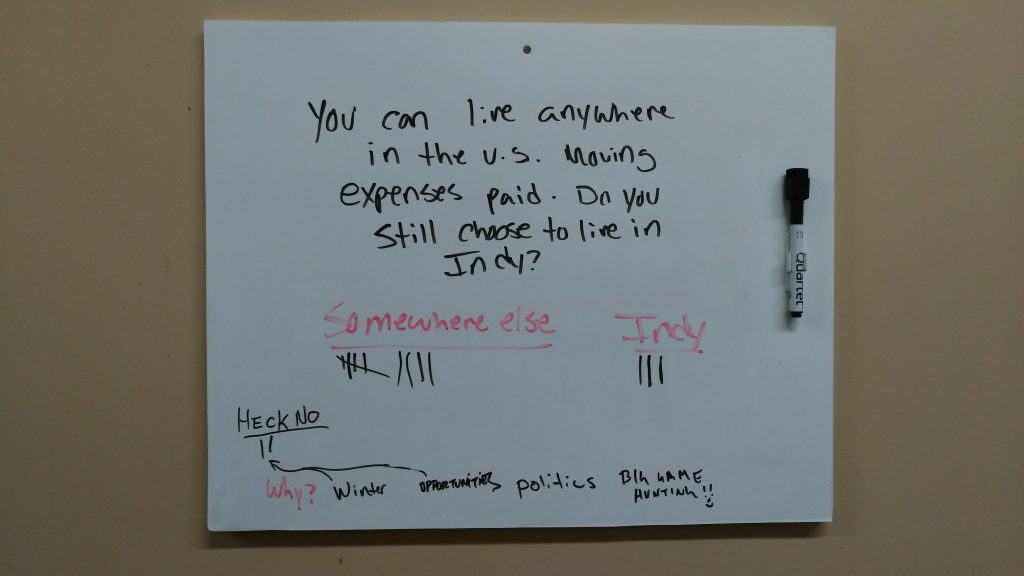 You can live anywhere
in the U.S. Moving
expenses paid. Do you
still choose to live in
Indy?
Somewhere else Indy
HECK NO
Why? Winter OPPORTUNITIES politics BIG GAME
HUNTING!!
Quartet